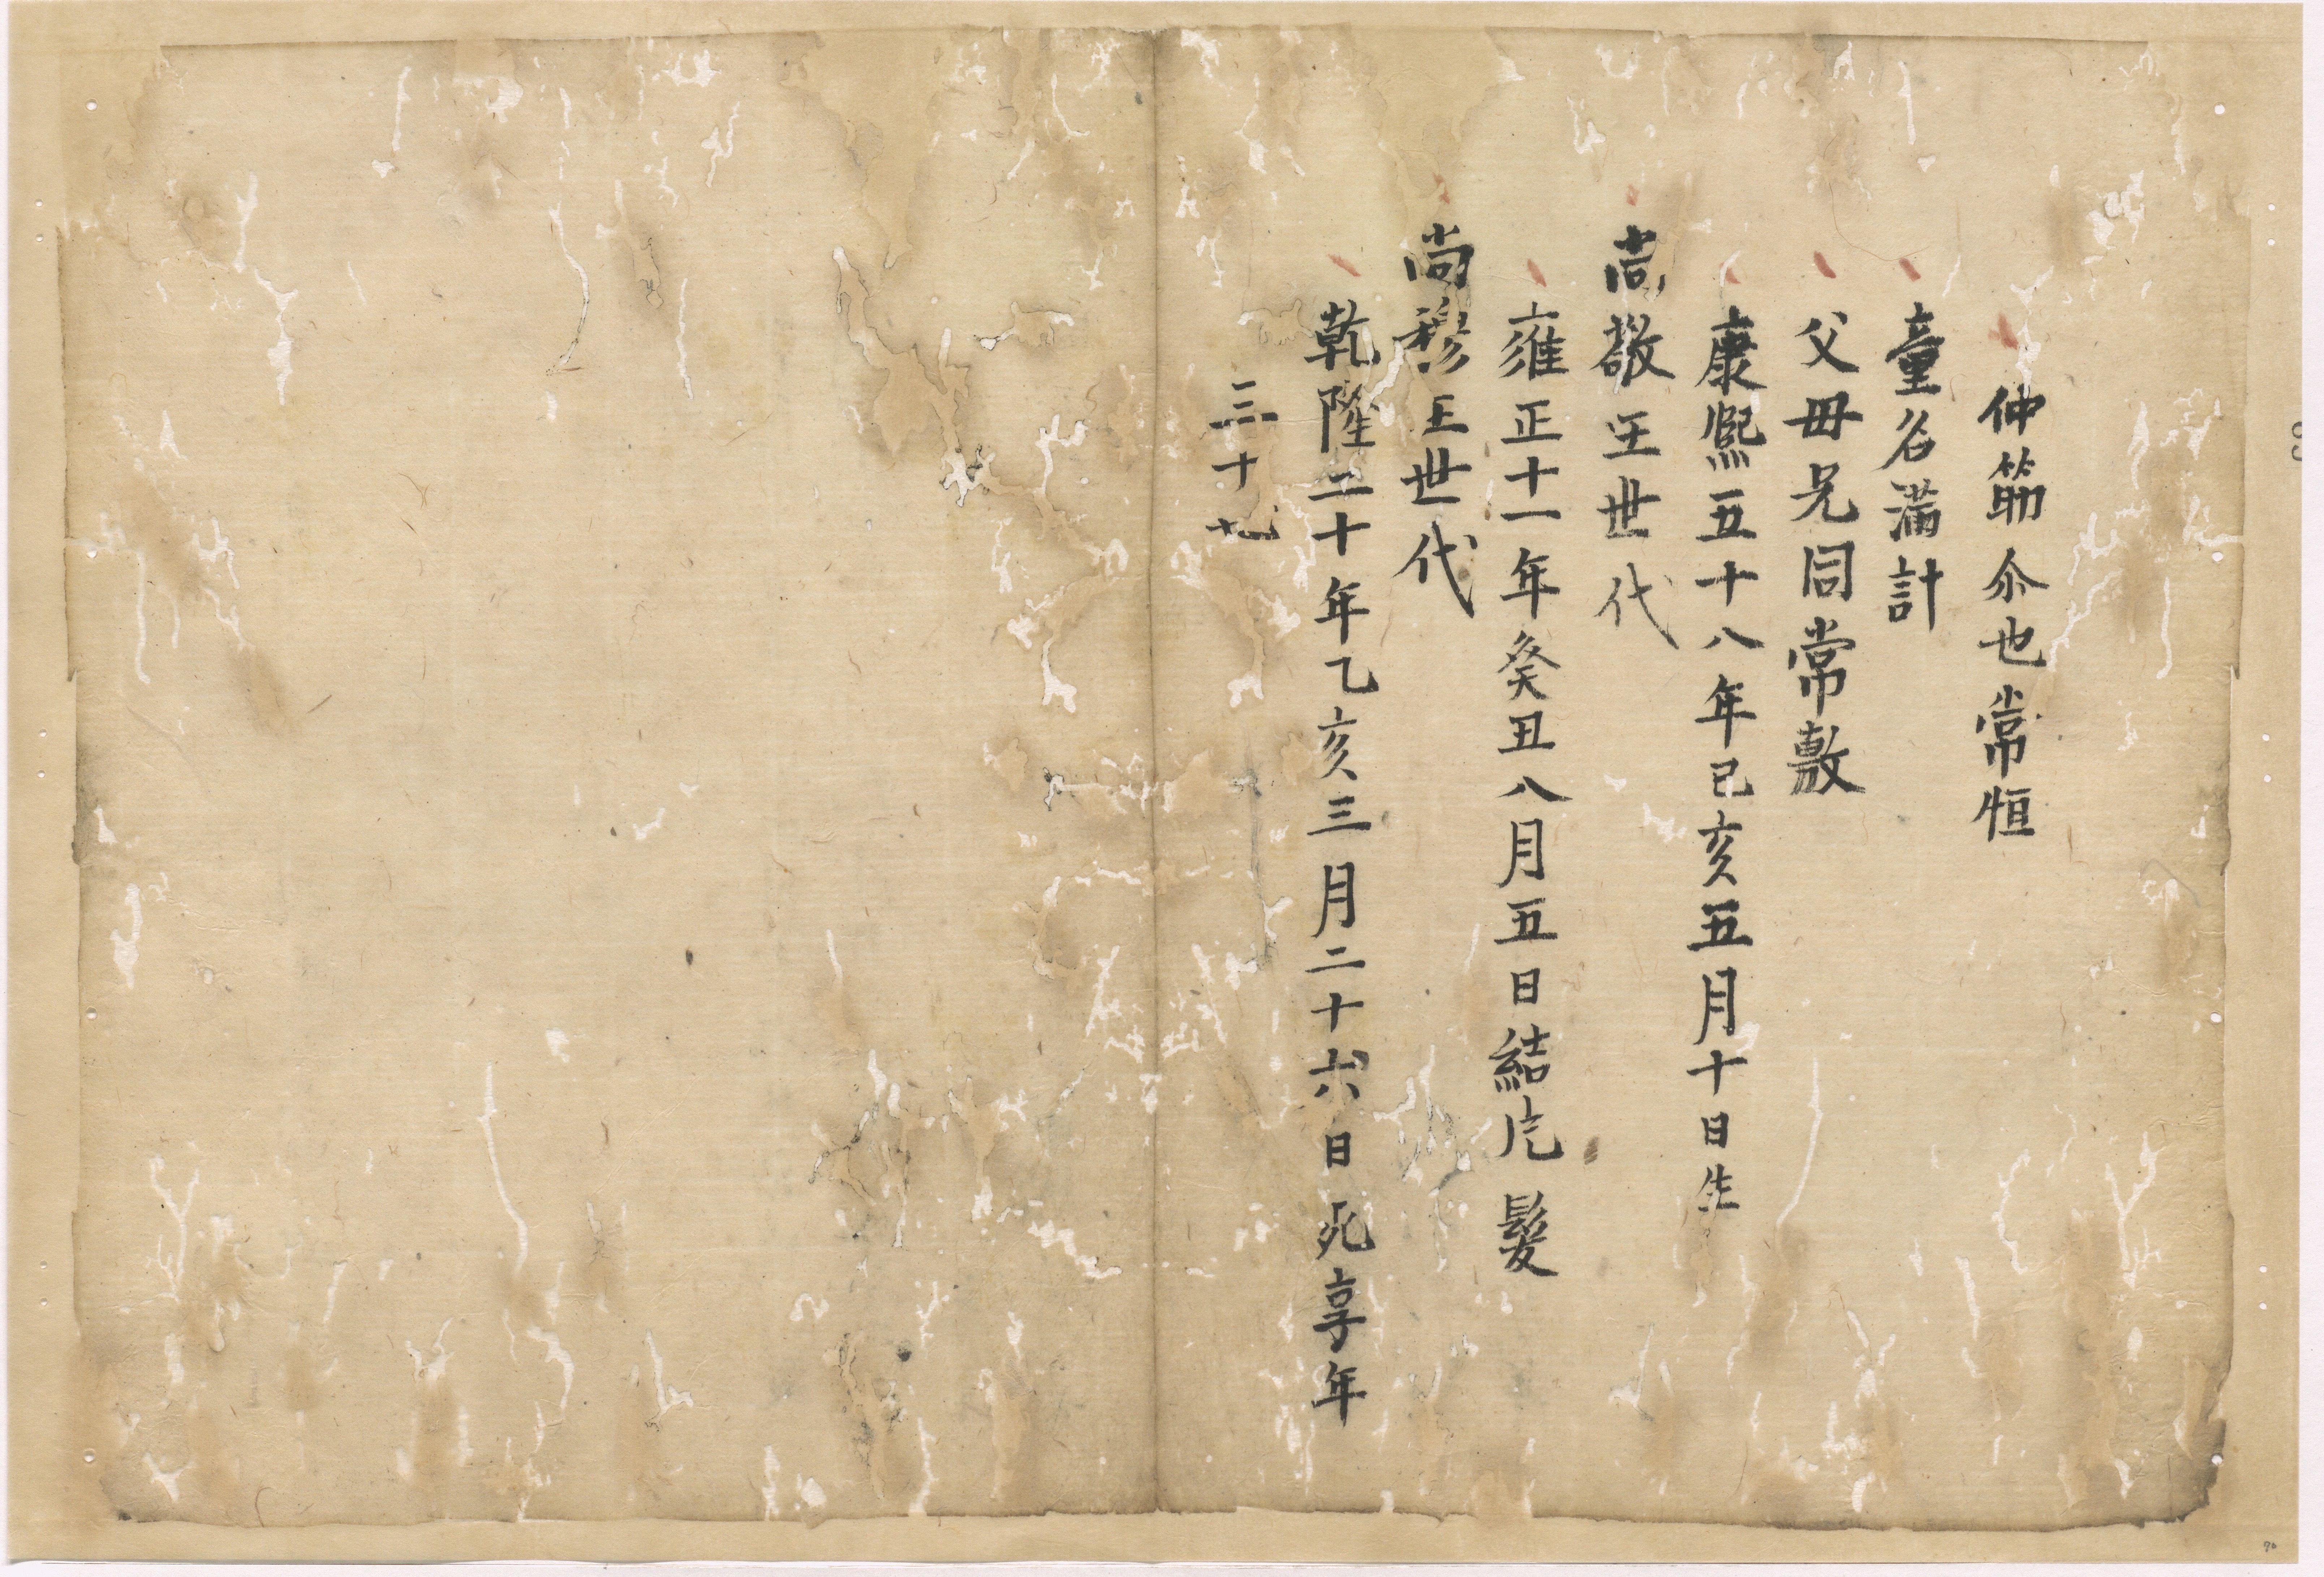 仲筋尒也常恒
童名滿計
父毋兄同常敷
康熙五十八年己亥五月十日生
尚敬王世代
雍正十一年癸丑八月五日結片髮
尚穆王世代
乾隆二十年乙亥三月二十六日死享年
三十七